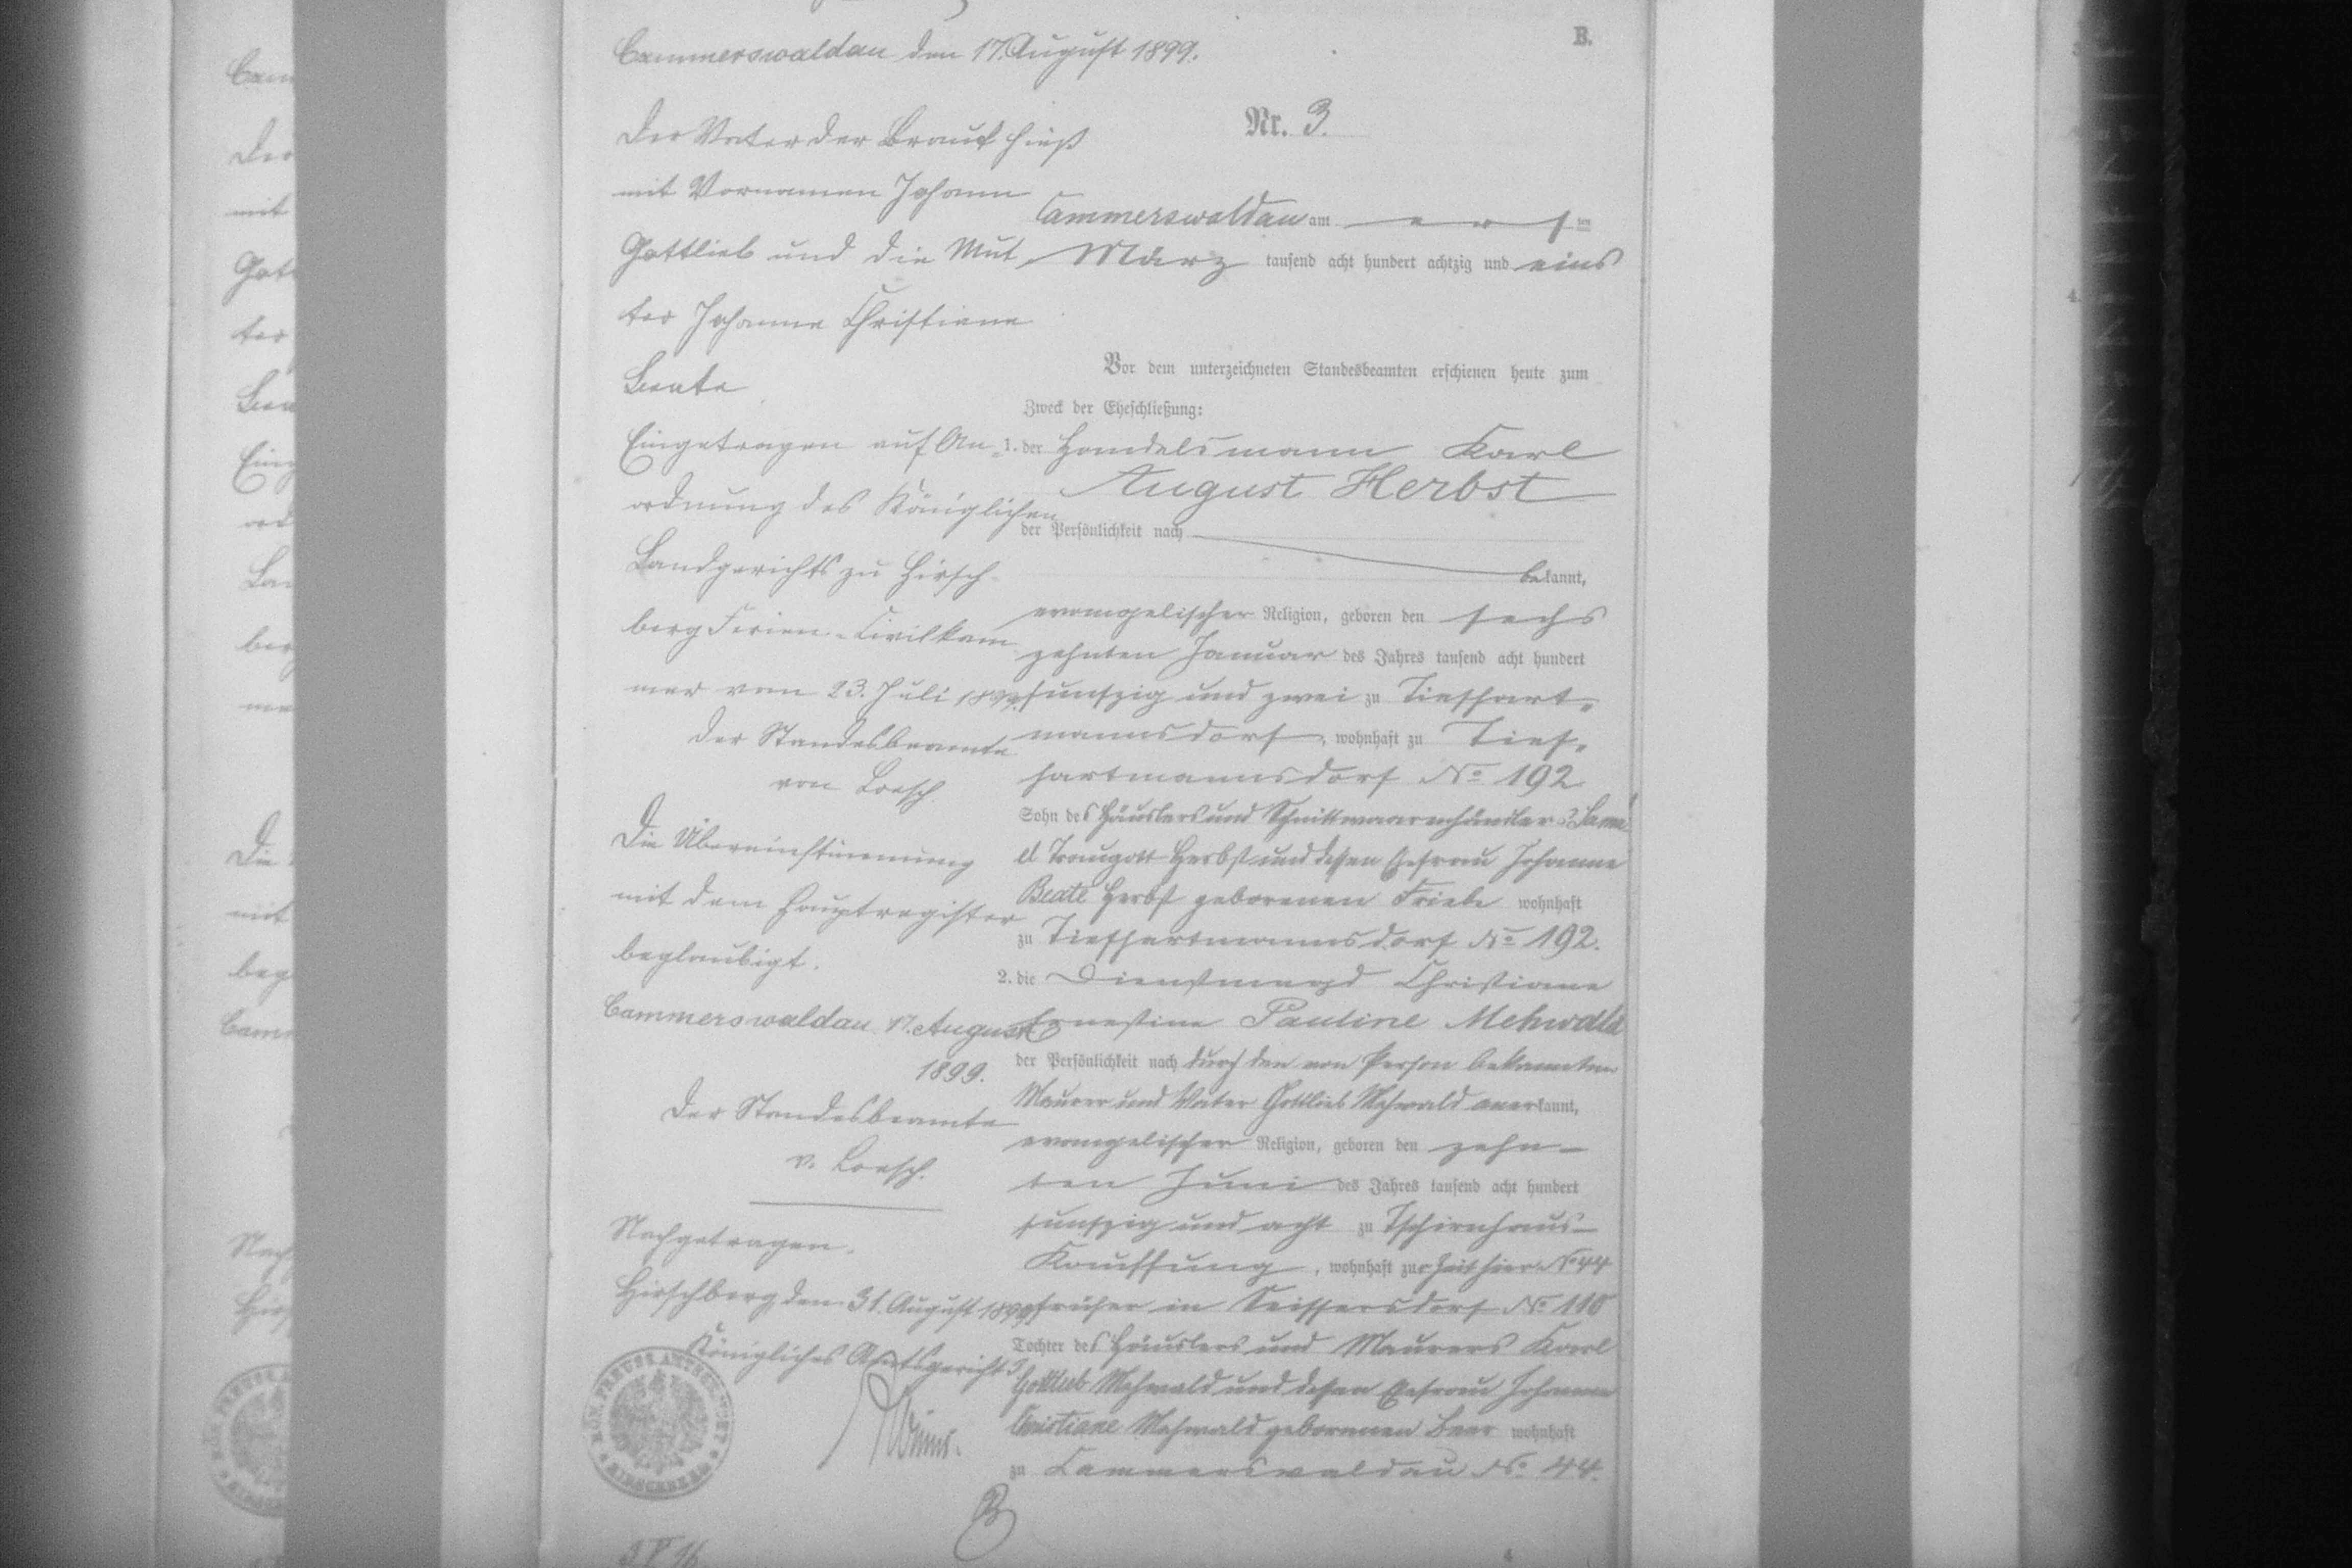 Cammerswaldau den 17. August 1899.
B.
Der Vater der Braut hieß
mit Vornamen Johann
Gottlieb und die Mut-
ter Johanne Christiane
Beate
Eingetragen auf An-
ordnung des Königlichen
Landgerichts zu Hirsch-
berg Ferien-Civilkam-
mer vom 23. Juli 1899.
Der Standesbeamte
von Loesch.
Die Übereinstimmung
mit dem Hauptregister
beglaubigt.
Cammerswaldau 17. August
1899.
Der Standesbeamte
v. Loesch.
Nachgetragen.
Hirschberg den 31. August 1899
Königliches Amtsgericht 3.
KÖN. PREUSS. AMTSGERICHT
HIRSCHBERG
Nr. 3.
Cammerswaldau am ten
März tausend acht hundert achtzig und eins
Vor dem unterzeichneten Standesbeamten erschienen heute zum
Zweck der Eheschließung:
1. der Handelsmann Karl
August Herbst
der Persönlichkeit nach
bekannt,
evangelischer Religion, geboren den sechs
zehnten Januar des Jahres tausend acht hundert
funfzig und zwei zu Tiefhart-
mannsdorf, wohnhaft zu Tief-
hartmannsdorf No 192
Sohn des Häuslers und Schnittwaarenhändlers Samu-
el Traugott Herbst und dessen Ehefrau Johanne
Beate Herbst geborenen Friebe wohnhaft
zu Tiefhartmannsdorf No 192.
2. die Dienstmagd Christiane
Ernestine Pauline Mehwald
der Persönlichkeit nach durch den von Person bekannten
Maurer und Vater Gottlieb Mehwald anerkannt,
evangelischer Religion, geboren den zehn-
ten Juni des Jahres tausend acht hundert
funfzig und acht zu Tschirnhaus-
Kauffung, wohnhaft zur Zeit hier No 44
früher in Seiffersdorf No 110
Tochter des Häuslers und Maurers Karl
Gottlieb Mehwald und dessen Ehefrau Johanne
Christiane Mehwald geborenen Beer wohnhaft
zu Cammerswaldau No 44.